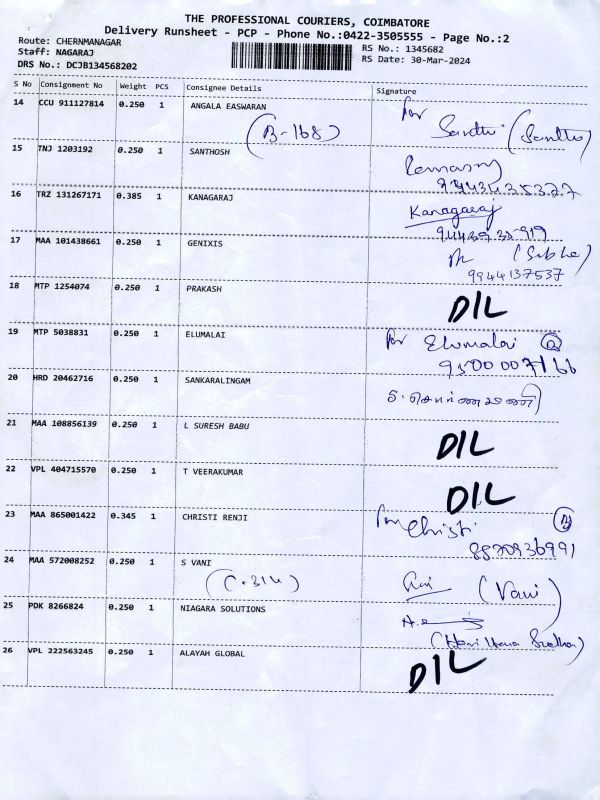 THE PROFESSIONAL COURIERS, COIMBATORE
Delivery Runsheet - PCP - Phone No.:0422-3505555 - Page No.:2
Route: CHERNMANAGAR
Staff: NAGARAJ
DRS No.: DCJB134568202
RS No.: 1345682
RS Date: 30-Mar-2024
S No Consignment No Weight PCS Consignee Details Signature
14 CCU 911127814 0.250 1 ANGALA EASWARAN for
(B-168)
15 TNJ 1203192 0.250 1 SANTHOSH
16 TRZ 131267171 0.385 1 KANAGARAJ Kanagaraj
17 MAA 101438661 0.250 1 GENIXIS
9944137537
18 MTP 1254074 0.250 1 PRAKASH DIL
19 MTP 5038831 0.250 1 ELUMALAI for Elumalai
9500007166
20 HRD 20462716 0.250 1 SANKARALINGAM
21 MAA 108856139 0.250 1 L SURESH BABU DIL
22 VPL 404715570 0.250 1 T VEERAKUMAR DIL
23 MAA 865001422 0.345 1 CHRISTI RENJI for Christi
24 MAA 572008252 0.250 1 S VANI (Vani)
(C.314)
25 PDK 8266824 0.250 1 NIAGARA SOLUTIONS
26 VPL 222563245 0.250 1 ALAYAH GLOBAL DIL